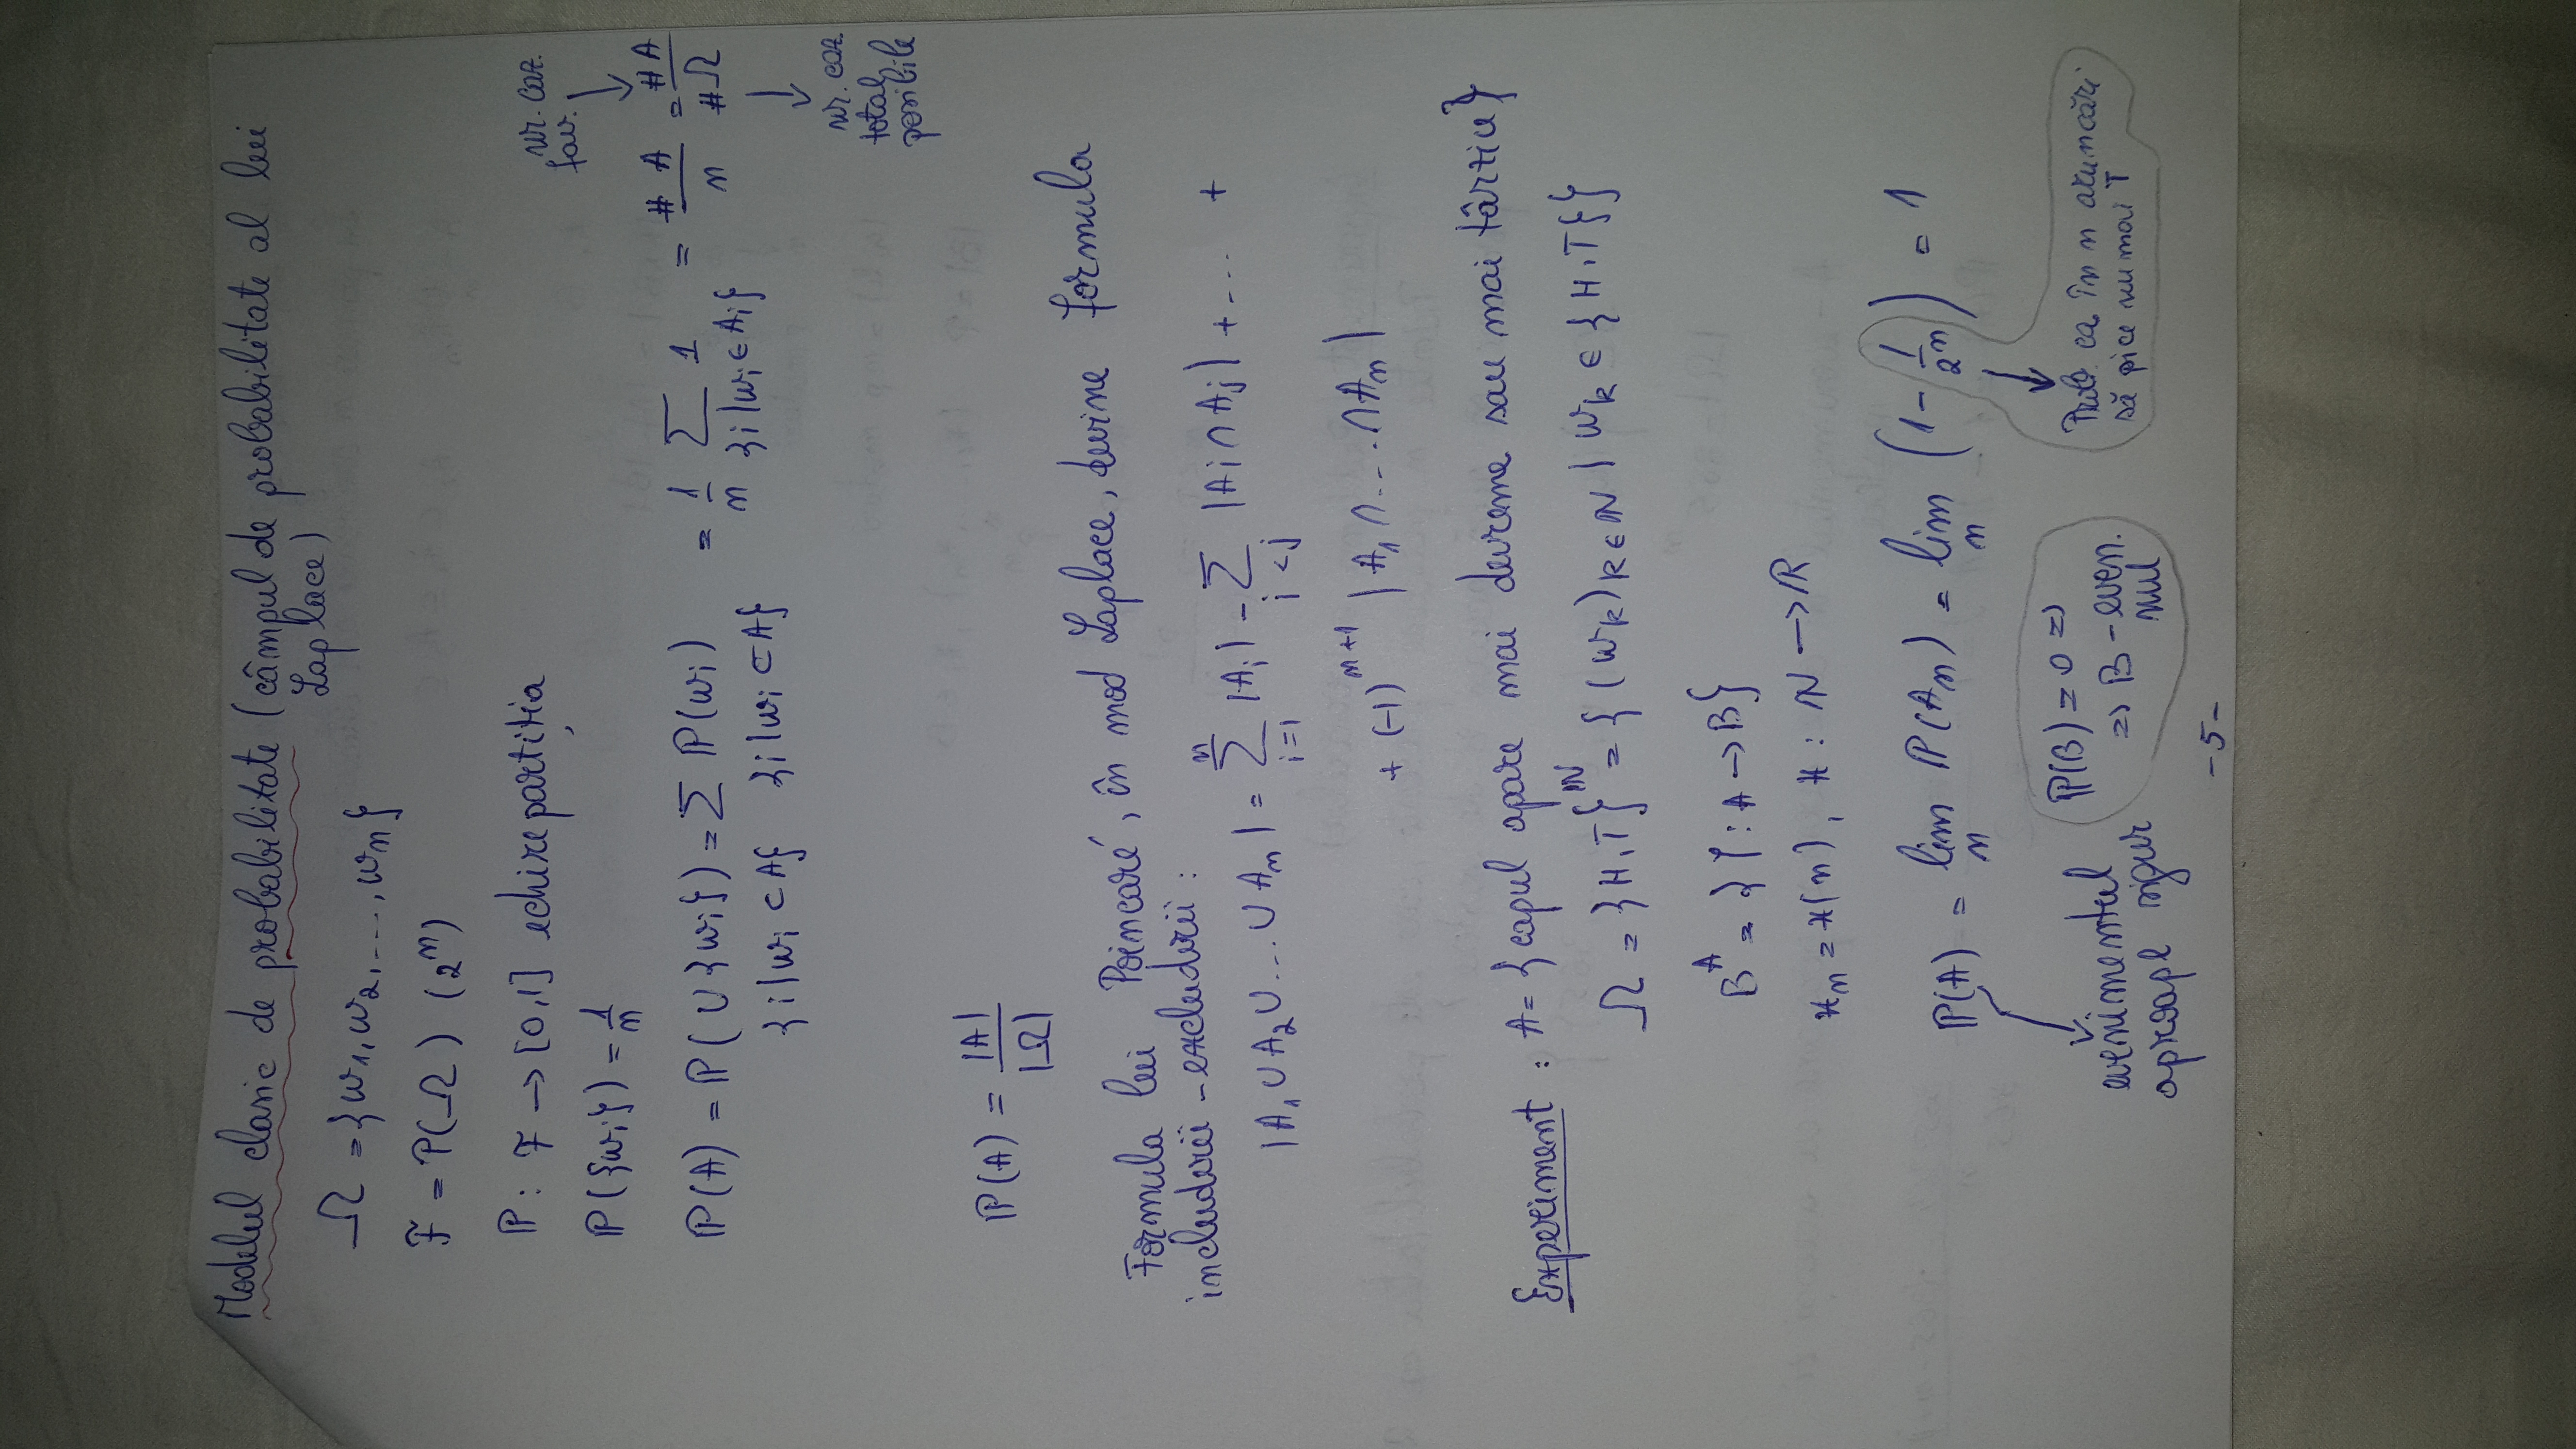 Modelul clasic de probabilitate (câmpul de probabilitate al lui
Laplace)
Ω = {ω₁, ω₂, ..., ωₙ}
F = P(Ω) (2ⁿ)
ℙ: F → [0,1] echirepartiția
ℙ({ωᵢ}) = 1/n
nr. caz.
fav.
↓
ℙ(A) = ℙ(∪{ωᵢ}) = Σ ℙ(ωᵢ) = 1/n Σ 1 = # A / n = # A / # Ω
{i|ωᵢ ⊂ A} {i|ωᵢ ⊂ A} {i|ωᵢ ∈ Aᵢ}
↓
nr. caz.
total
posibile
ℙ(A) = |A| / |Ω|
Formula lui Poincaré, în mod Laplace, devine formula
includerii - excluderii :
|A₁ ∪ A₂ ∪ ... ∪ Aₙ| = Σⁿᵢ₌₁ |Aᵢ| - Σ i<j |Aᵢ ∩ Aⱼ| + ... +
+ (-1)ⁿ⁺¹ |A₁ ∩ ... ∩ Aₙ|
Experiment : A = {capul apare mai devreme sau mai târziu}
Ω = {H,T}^ℕ = {(ωₖ)ₖ∈ℕ | ωₖ ∈ {H,T}}
B^A = {f : A → B}
xₙ = x(n), x : ℕ → ℝ
ℙ(A) = lim n ℙ(Aₙ) = lim n (1 - 1/2ⁿ) = 1
evenimentul
aproape sigur
ℙ(B) = 0 =>
=> B - even.
nul
Prob. ca în n aruncări
să pice numai T
-5-